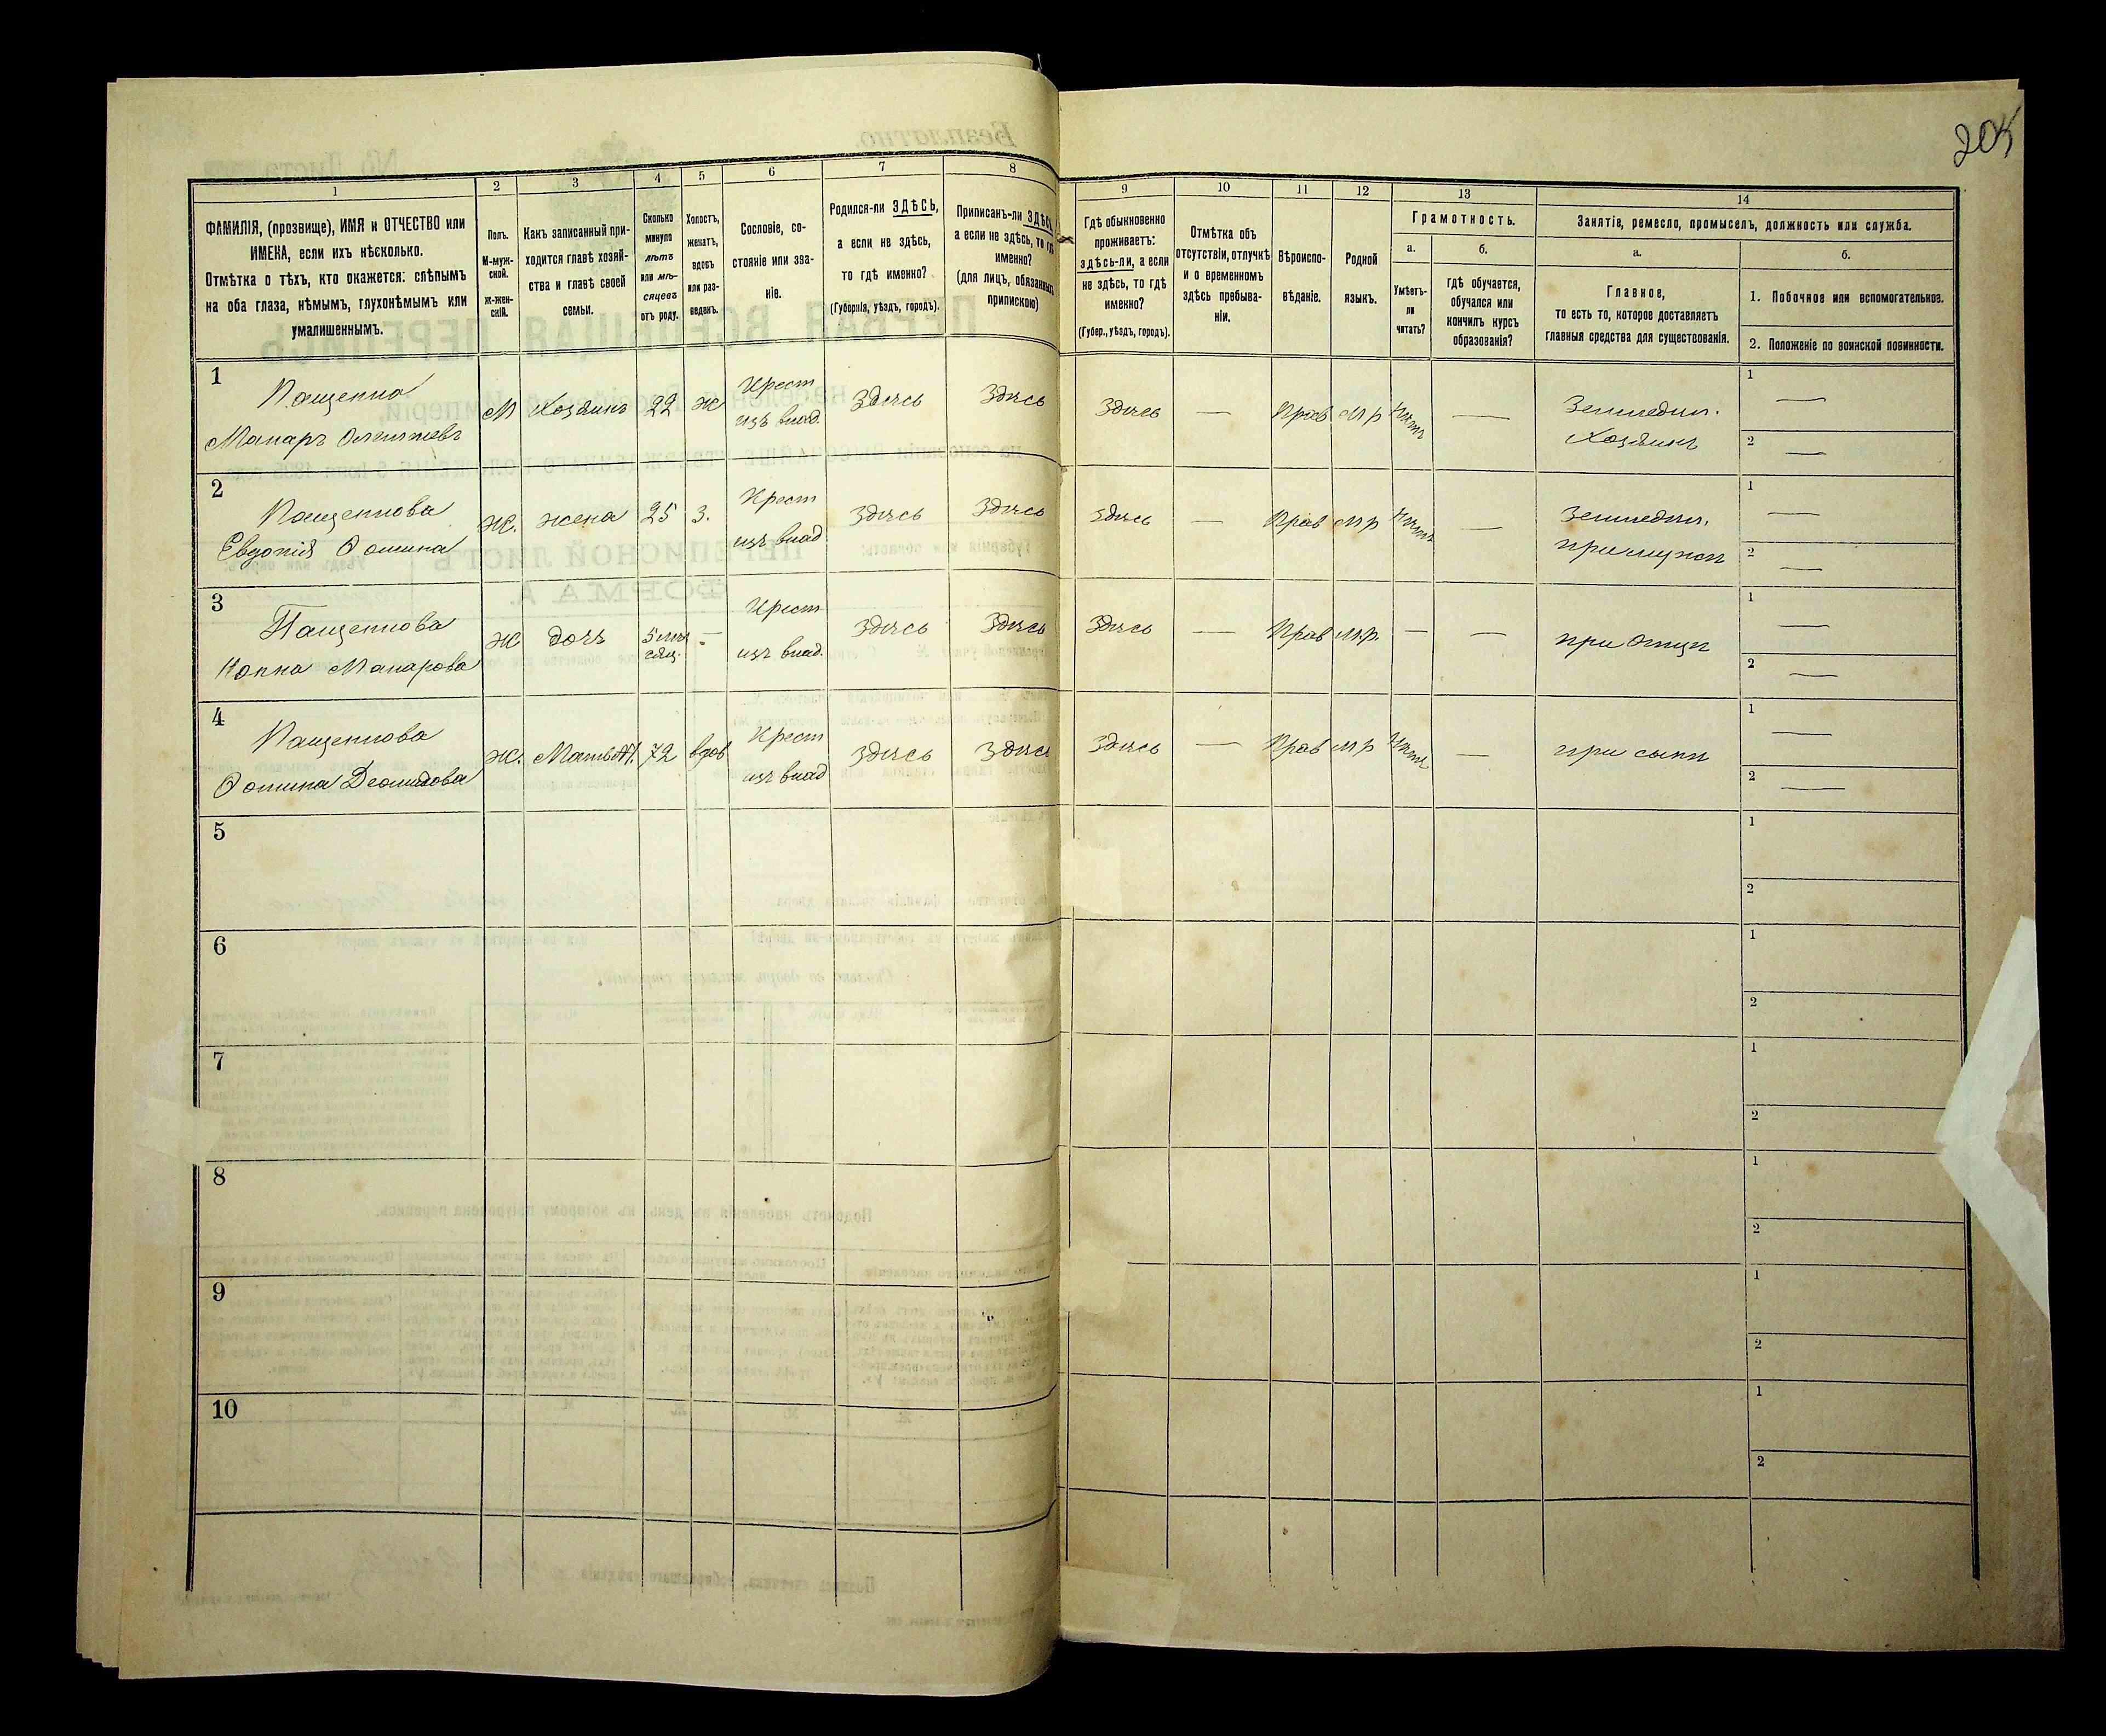 205
1
2
3
4
5
6
7
8
ФАМИЛІЯ, (прозвище), ИМЯ и ОТЧЕСТВО или
ИМЕНА, если ихъ нѣсколько.
Отмѣтка о тѣхъ, кто окажется: слѣпымъ
на оба глаза, нѣмымъ, глухонѣмымъ или
умалишеннымъ.
Полъ.
М-муж-
ской.
Ж-жен-
скій.
Какъ записанный при-
ходится главѣ хозяй-
ства и главѣ своей
семьи.
Сколько
минуло
лѣтъ
или мѣ-
сяцевъ
отъ роду.
Холостъ,
женатъ,
вдовъ
или раз-
веденъ.
Сословіе, со-
стояніе или зва-
ніе.
Родился-ли ЗДѢСЬ,
а если не здѣсь,
то гдѣ именно?
(Губернія, уѣздъ, городъ).
Приписанъ-ли ЗДѢСЬ,
а если не здѣсь, то гдѣ
именно?
(для лицъ, обязанныхъ
припискою)
9
10
11
12
13
14
Гдѣ обыкновенно
проживаетъ:
здѣсь-ли, а если
не здѣсь, то гдѣ
именно?
(Губер., уѣздъ, городъ).
Отмѣтка объ
отсутствіи, отлучкѣ
и о временномъ
здѣсь пребыва-
ніи.
Вѣроиспо-
вѣданіе.
Родной
языкъ.
Грамотность.
а.
б.
Умѣетъ-
ли
читать?
гдѣ обучается,
обучался или
кончилъ курсъ
образованія?
Занятіе, ремесло, промыселъ, должность или служба.
а.
б.
Главное,
то есть то, которое доставляетъ
главныя средства для существованія.
1. Побочное или вспомогательное.
2. Положеніе по воинской повинности.
1
Пащенко
Макаръ
М Хозяинъ 22 ж
Крест
изъ влад.
Здѣсь Здѣсь Здѣсь — Прав М р Нѣтъ —
Земледѣл.
Хозяинъ
1 —
2 —
2
Пащенкова
Евдокія Фомина
Ж. жена 25 З.
Крест
изъ влад
Здѣсь Здѣсь Здѣсь — Прав М р Нѣтъ —
Земледѣл.
при мужѣ
1 —
2 —
3
Пащенкова
Макарова
Ж дочь 5 мѣ
сяц. —
Крест
изъ влад.
Здѣсь Здѣсь Здѣсь — Прав М.р. — —
при Отцѣ
1 —
2 —
4
Пащенкова
Ж. Мать 72 вдов
Крест
изъ влад
Здѣсь Здѣсь Здѣсь — Прав М р Нѣтъ —
при сынѣ
1 —
2 —
5
1
2
6
1
2
7
1
2
8
1
2
9
1
2
10
1
2